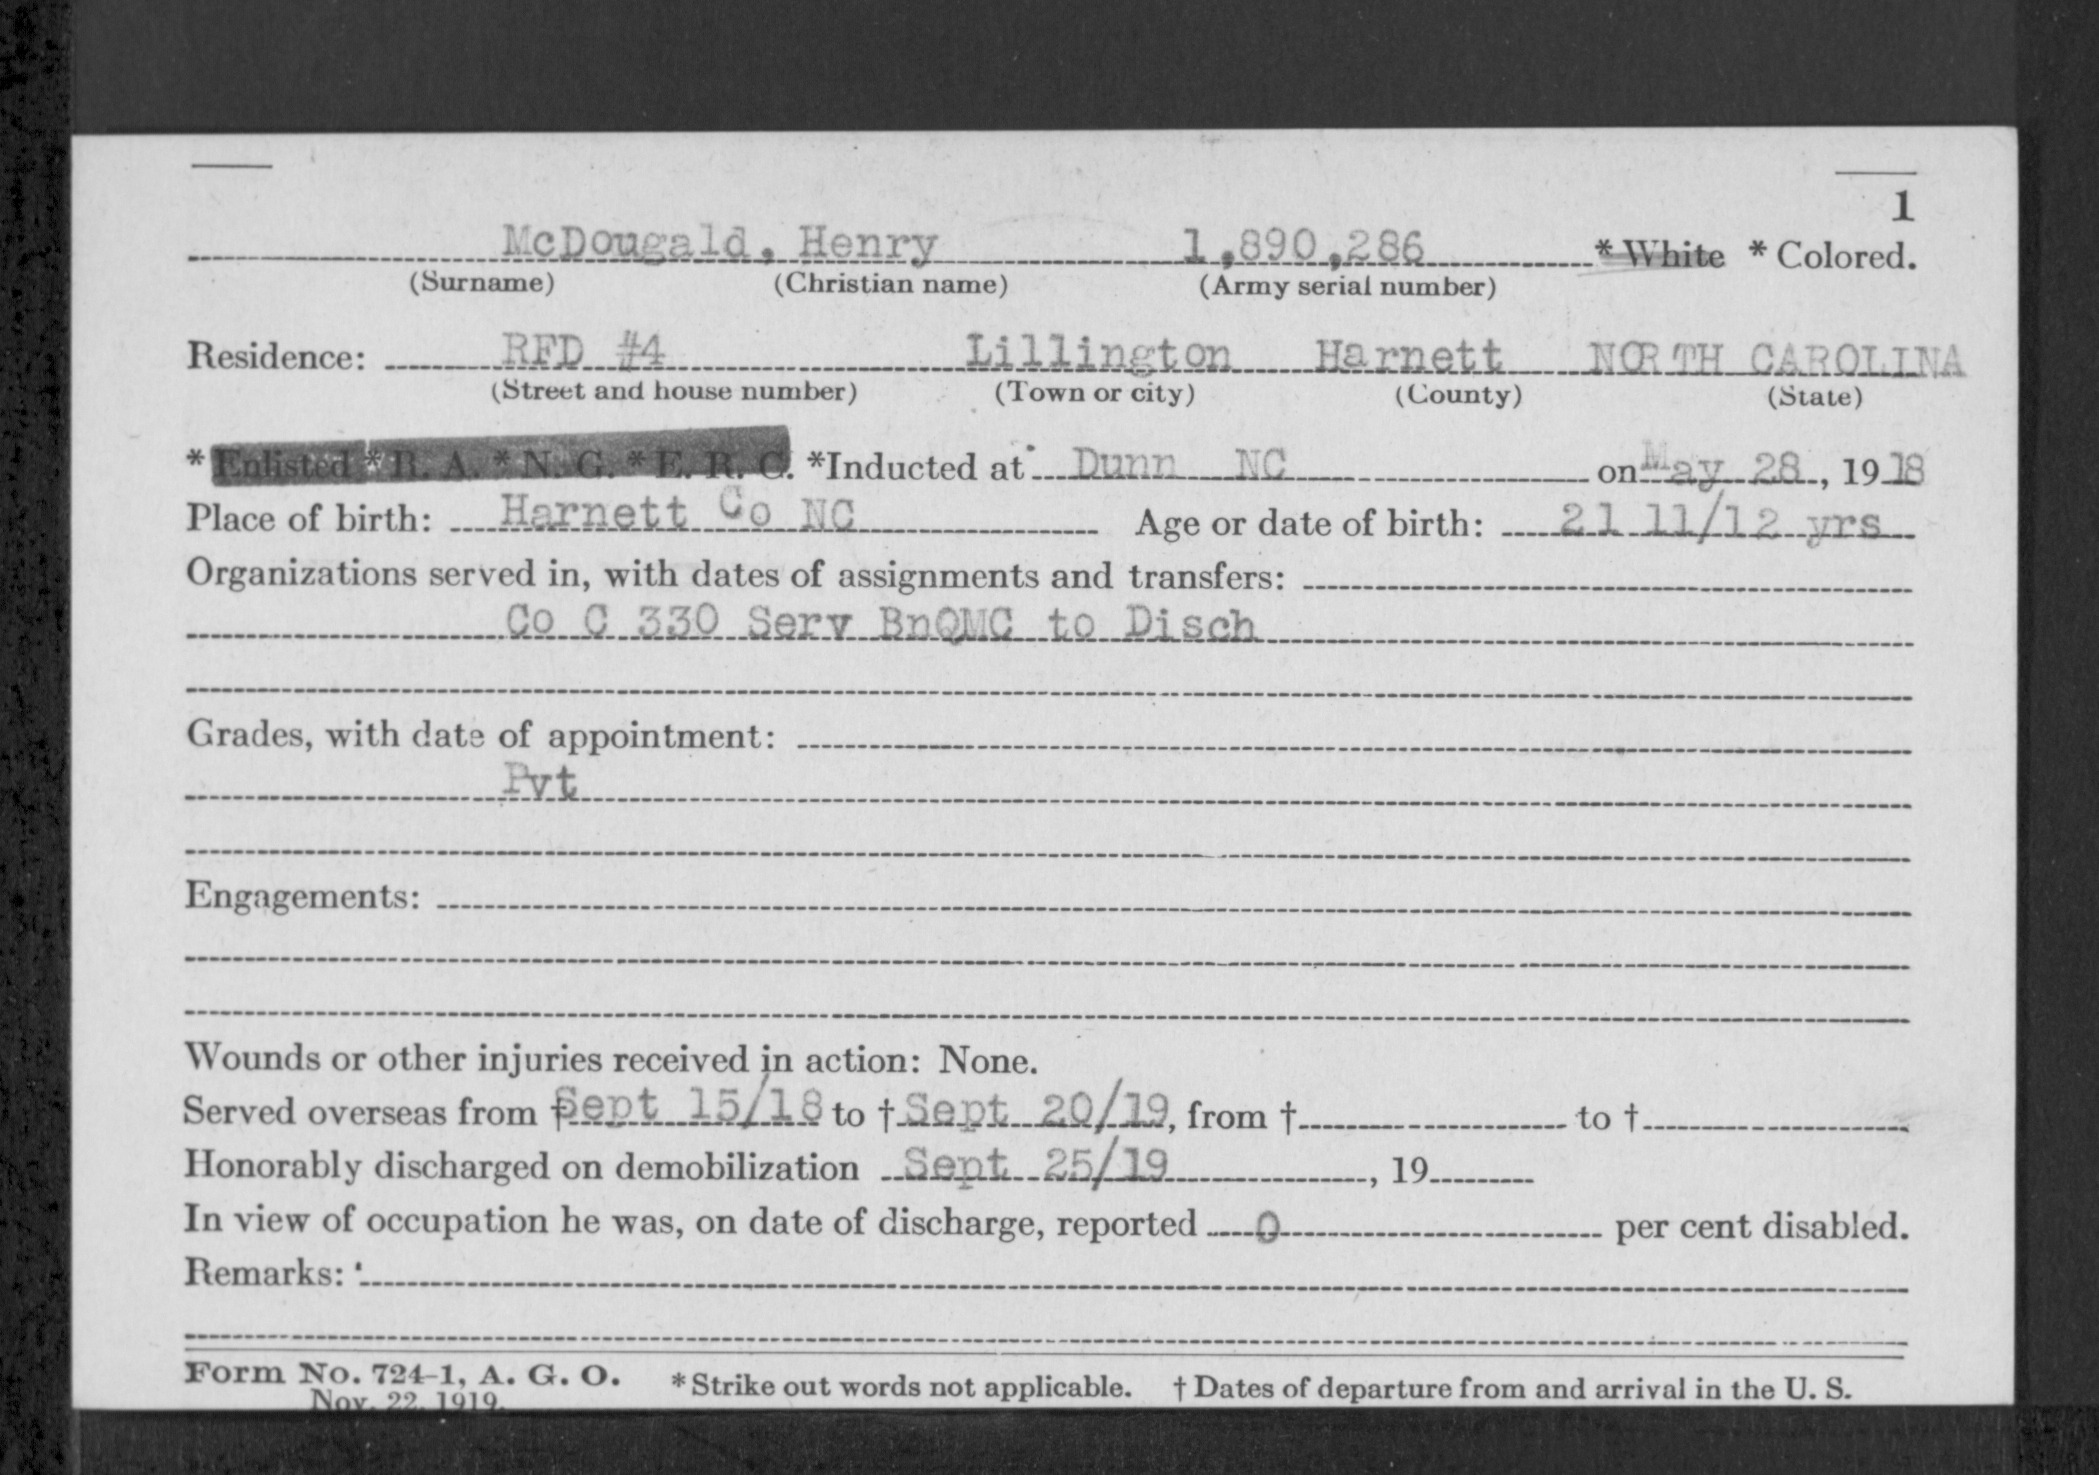 1
McDougald, Henry 1,890,286 * White * Colored.
(Surname) (Christian name) (Army serial number)
Residence: RFD #4 Lillington Harnett NORTH CAROLINA
(Street and house number) (Town or city) (County) (State)
* Enlisted * R. A. * N. G. * E. R. C. *Inducted at Dunn NC on May 28, 1918
Place of birth: Harnett Co NC Age or date of birth: 21 11/12 yrs
Organizations served in, with dates of assignments and transfers:
Co C 330 Serv BnQMC to Disch
Grades, with date of appointment:
Pvt
Engagements:
Wounds or other injuries received in action: None.
Served overseas from † Sept 15/18 to † Sept 20/19, from † to †
Honorably discharged on demobilization Sept 25/19, 19
In view of occupation he was, on date of discharge, reported 0 per cent disabled.
Remarks:
Form No. 724-1, A. G. O. * Strike out words not applicable. † Dates of departure from and arrival in the U. S.
Nov. 22, 1919.